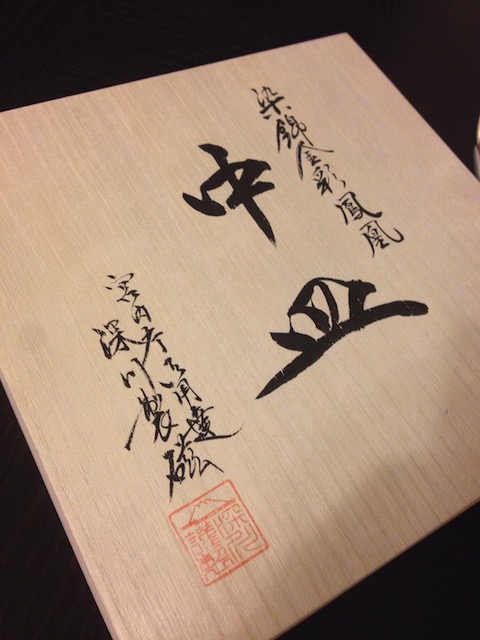 染錦金彩鳳凰
中皿
宮内庁御用達
深川製磁
深川謹製